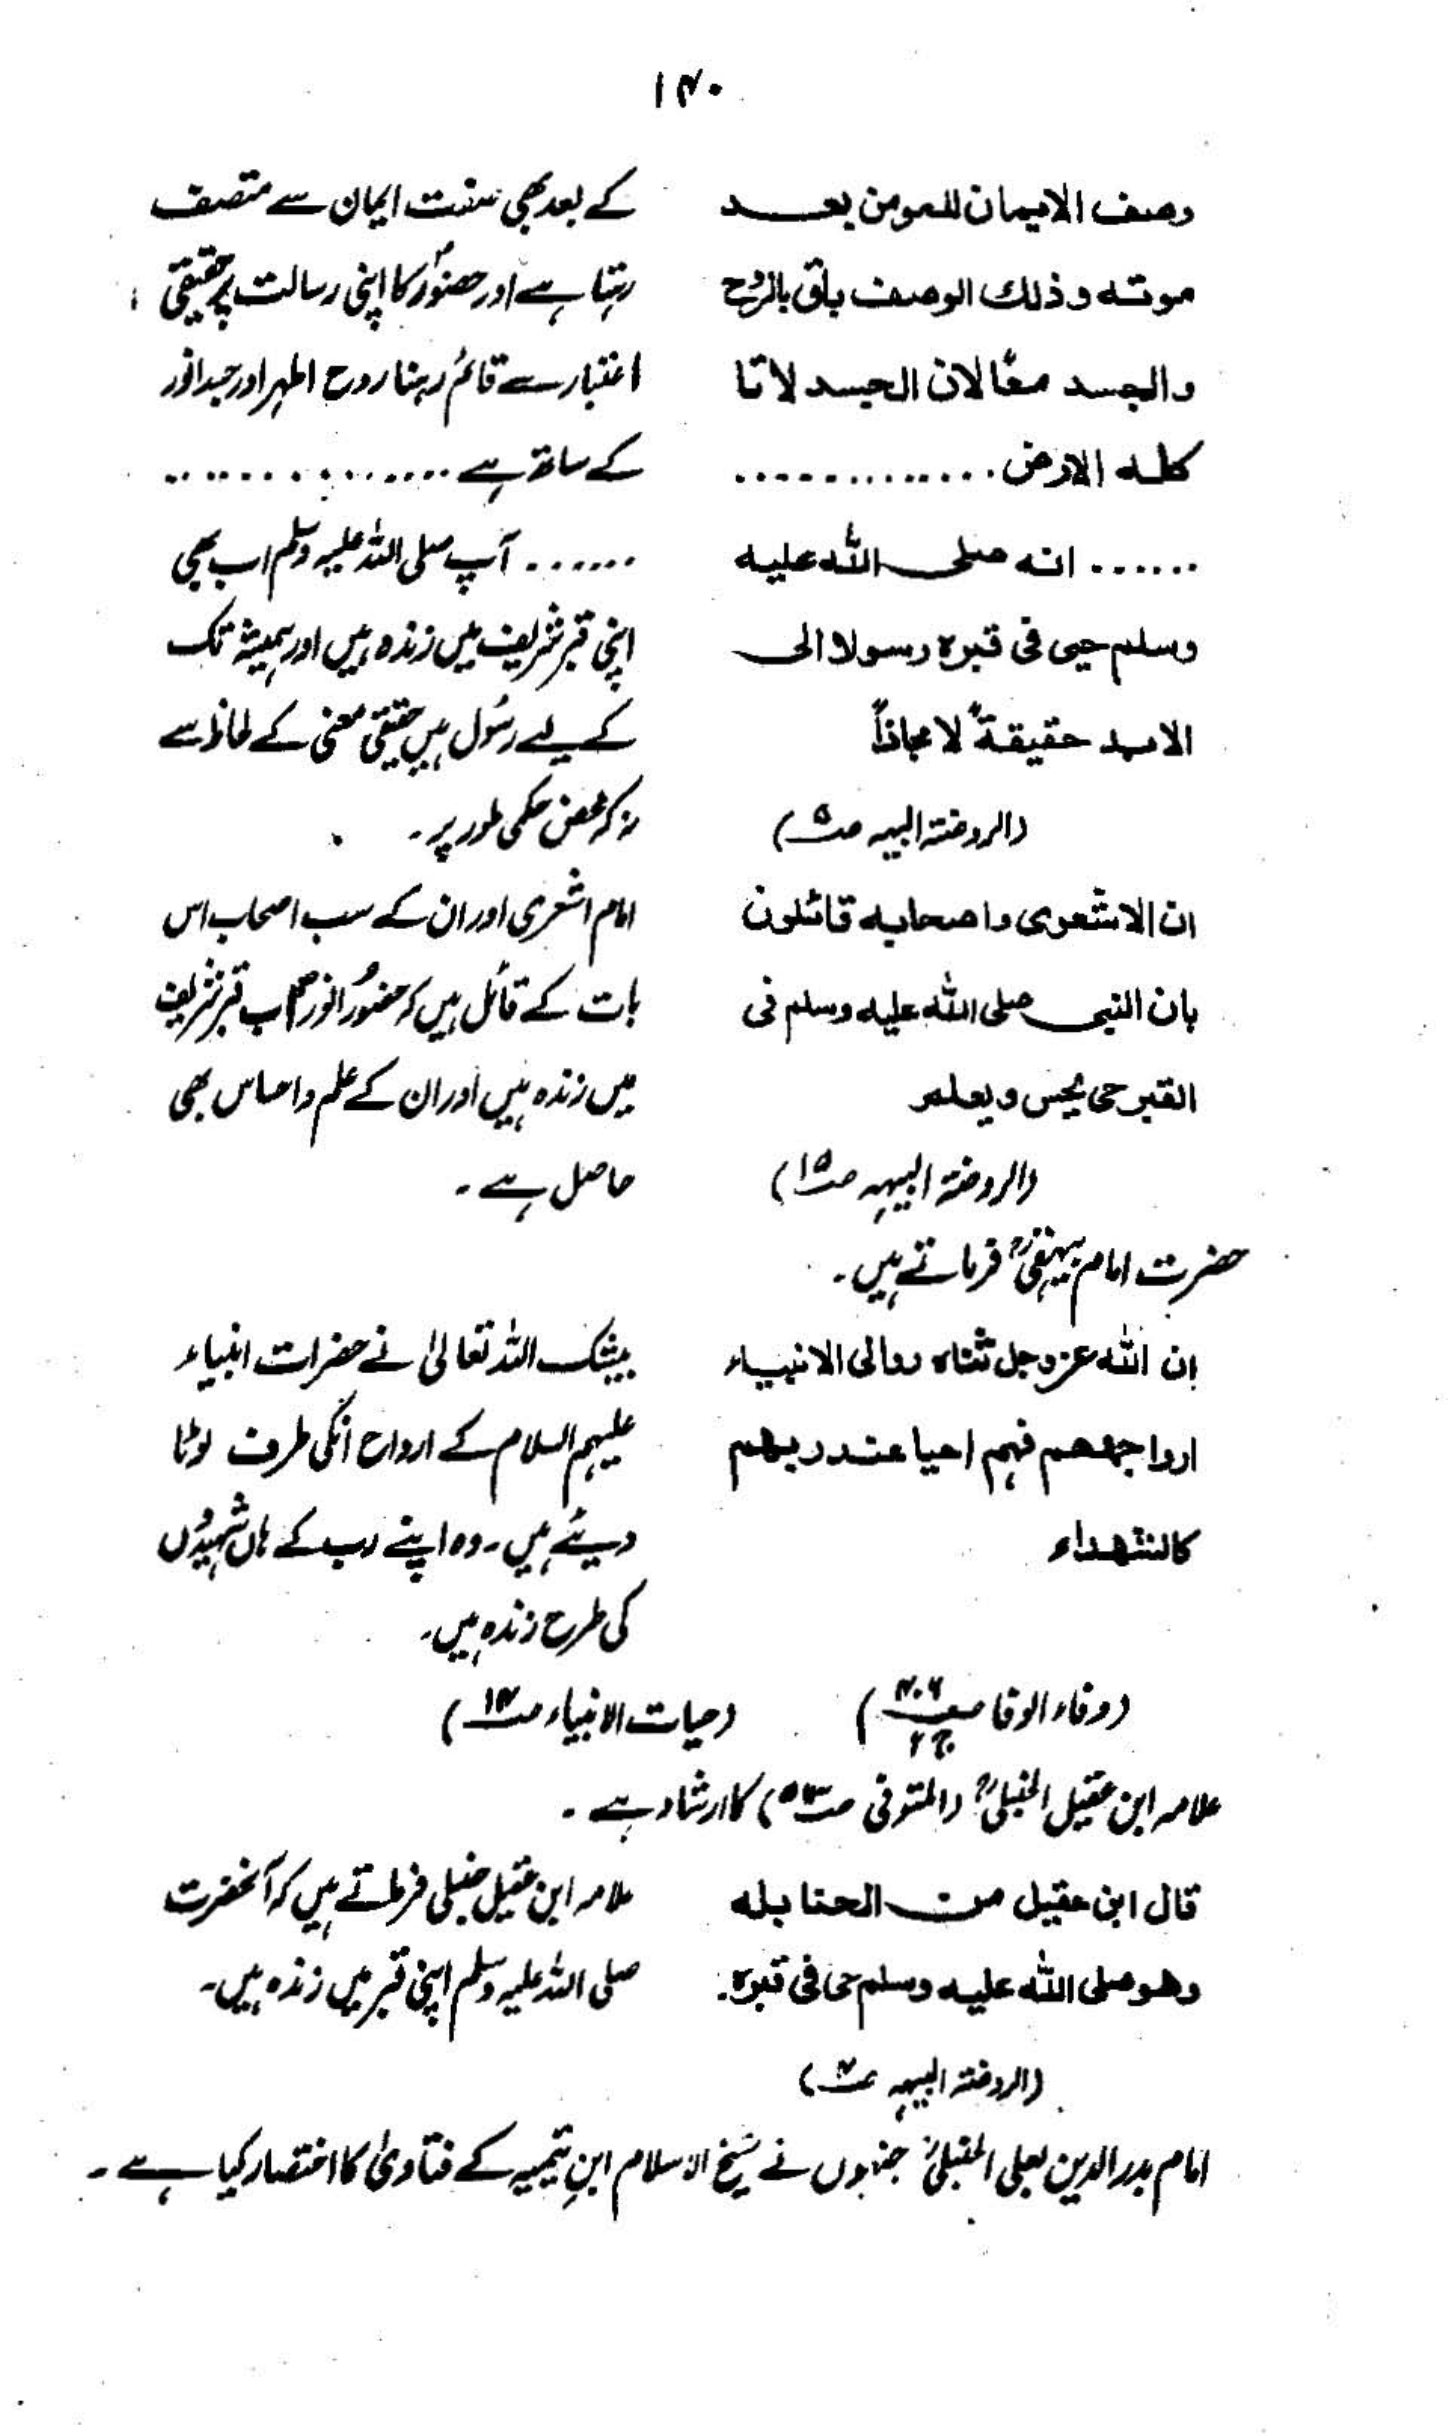 ۱۴۰
وصف الایمان للمومن بعد
موتہ و ذلك الوصف باق بالروح
والجسد معًا لان الجسد لا تا
کلہ الارض ............
...... انہ صلی اللہ علیہ
وسلم حیی فی قبرہ رسولا الی
الابد حقیقۃً لا مجازاً
(الروضتہ البہیہ صـ۵)
کے بعد بھی صفت ایمان سے متصف
رہتا ہے اور حضورؐ کا اپنی رسالت پر حقیقی
اعتبار سے قائم رہنا روح اطہر اور جسد انور
کے ساتھ ہے ..............
...... آپ صلی اللہ علیہ وسلم اب بھی
اپنی قبر شریف میں زندہ ہیں اور ہمیشہ تک
کے لیے رسُول ہیں حقیقی معنی کے لحاظ سے
نہ کہ محض حکمی طور پر۔
ان الاشعری واصحابہ قائلون
بان النبی صلی اللہ علیہ وسلم فی
القبر حی یحس ویعلم
(الروضتہ البہیہ صـ۱۵)
امام اشعری اور ان کے سب اصحاب اس
بات کے قائل ہیں کہ حضورُ انورؐ اب قبر شریف
میں زندہ ہیں اور ان کے علم و احساس بھی
حاصل ہے۔
حضرت امام بیہقیؒ فرماتے ہیں۔
ان اللہ عزوجل ثناہ ردالی الانبیاء
ارواجھم فہم احیا عند ربہم
کالشھداء
بیشک اللہ تعالیٰ نے حضرات انبیاء
علیہم السلام کے ارواح انکی طرف لوٹا
دیئے ہیں۔ وہ اپنے رب کے ہاں شہیدوں
کی طرح زندہ ہیں۔
(وفاء الوفا صـ۴۰۶ ج۲) (حیات الانبیاء صـ۱۴)
علامہ ابن عقیل الحنبلیؒ (المتوفی صـ۵۱۳) کا ارشاد ہے۔
قال ابن عقیل من الحنابلہ
وھو صلی اللہ علیہ وسلم حی فی قبرہ.
(الروضتہ البہیہ صـ۴)
علامہ ابن عقیل حنبلی فرماتے ہیں کہ آنحضرت
صلی اللہ علیہ وسلم اپنی قبر میں زندہ ہیں۔
امام بدر الدین بعلی الحنبلیؒ جنہوں نے شیخ الاسلام ابنِ تیمیہ کے فتاویٰ کا اختصار کیا ہے۔